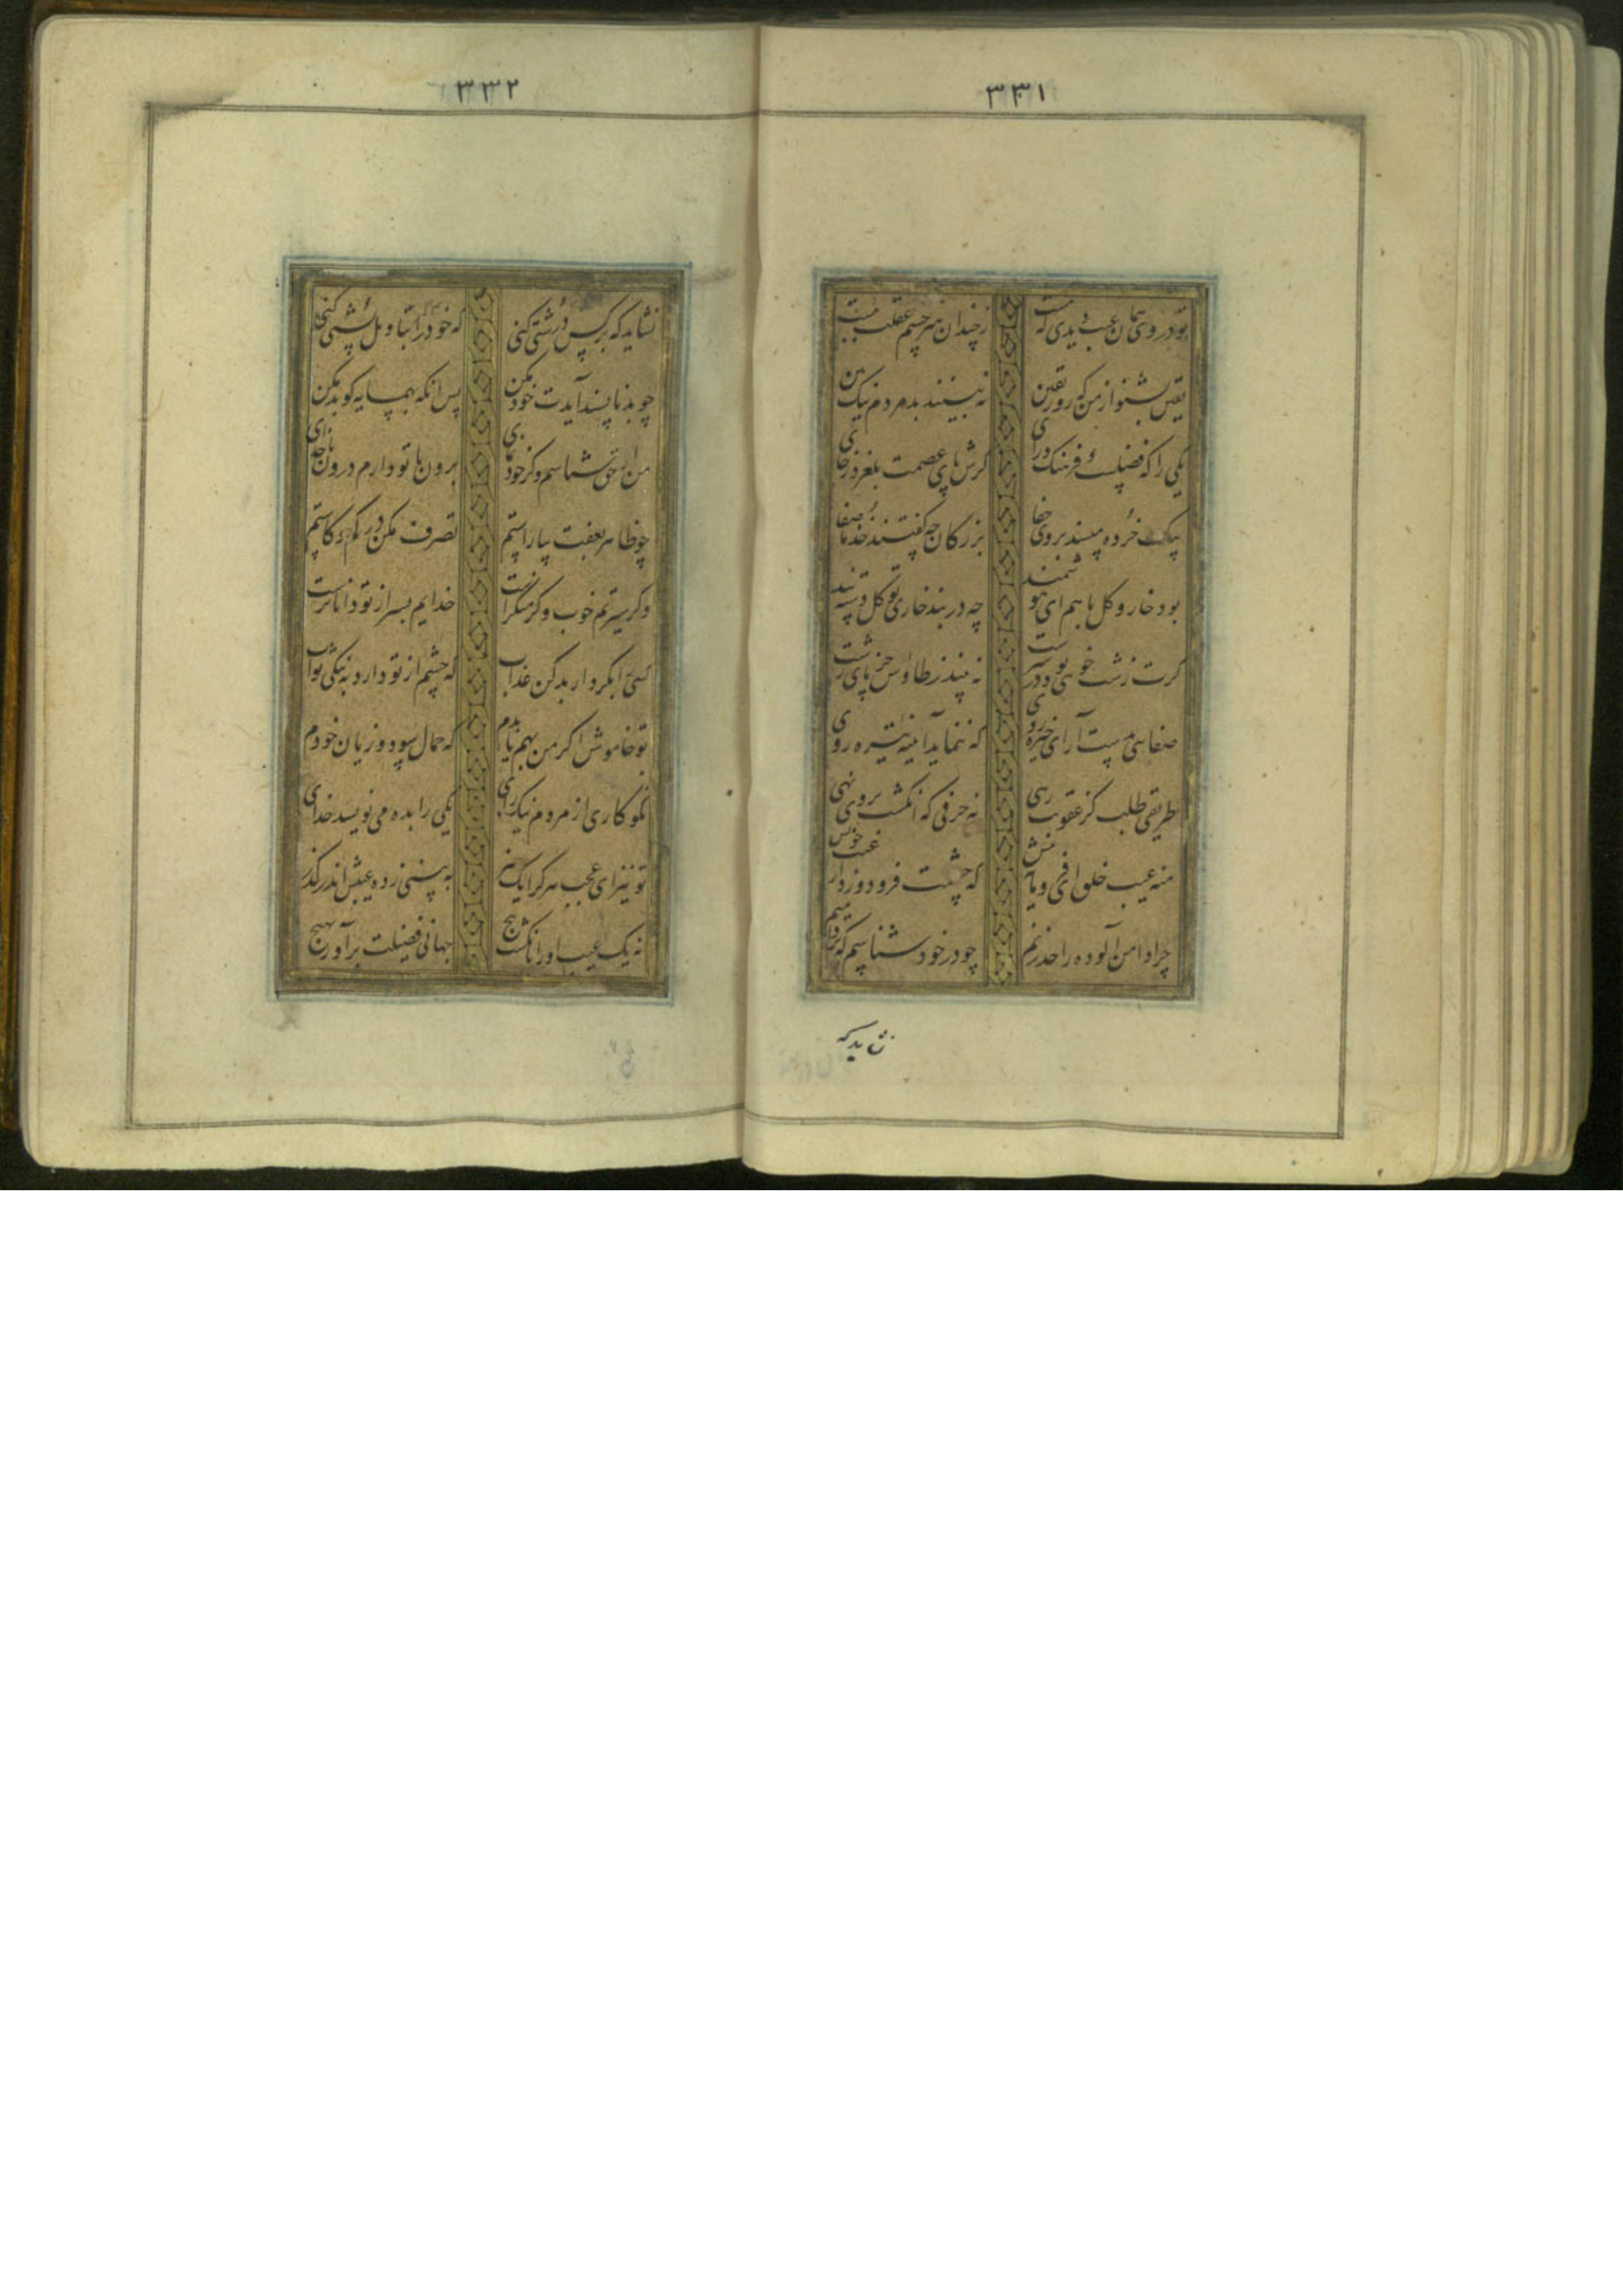 ۳۳۱
تو در وی همان عیب دیدی که هست ز چندان هنر چشم عقلت ببست
یقین بشنو از من که روز یقین نه بینند بد مردم نیک بین
یکی را که فضلست و فرهنگ و رای گرش پای عصمت بلغزد ز جای
بیک خرده مپسند بر وی جفا بزرگان چه گفتند خذ ما صفا
بود خار و گل با هم ای هوشمند چه در بند خاری تو گل دسته بند
کرا زشت خویی بود در سرشت نه بیند ز طاوس جز پای زشت
صفایی بدست آر ای خیره روی که ننماید آیینه تیره روی
طریقی طلب کز عقوبت رهی نه حرفی که انگشت بر وی نهی
منه عیب خلق ای فرومایه پیش که چشمت فرو دوزد از عیب خویش
چرا دامن آلوده را حد زنم چو در خود شناسم که تر دامنم
نشاید که
۳۳۲
نشاید که بر کس درشتی کنی که خود را بتاویل پشتی کنی
چو بد ناپسند آیدت خود مکن پس آنگه بهمسایه گو بد مکن
من ار حق شناسم وگر خود نمای برون با تو دارم درون با خدای
چو ظاهر بعفت بیاراستم تصرف مکن در کم و کاستم
وگر سیرتم خوب وگر منکرست خدایم بسر از تو داناترست
کسی را بکردار بد کن عذاب که چشم از تو دارد به نیکی ثواب
تو خاموش اگر من بهم یا بدم که حمال سود و زیان خودم
نکوکاری از مردم نیک رای یکی را بده می نویسد خدای
تو نیز ای عجب هر کرا یک هنر به بینی ز ده عیبش اندر گذر
نه یک عیب او را بانگشت پیچ جهانی فضیلت بر آور بهیچ